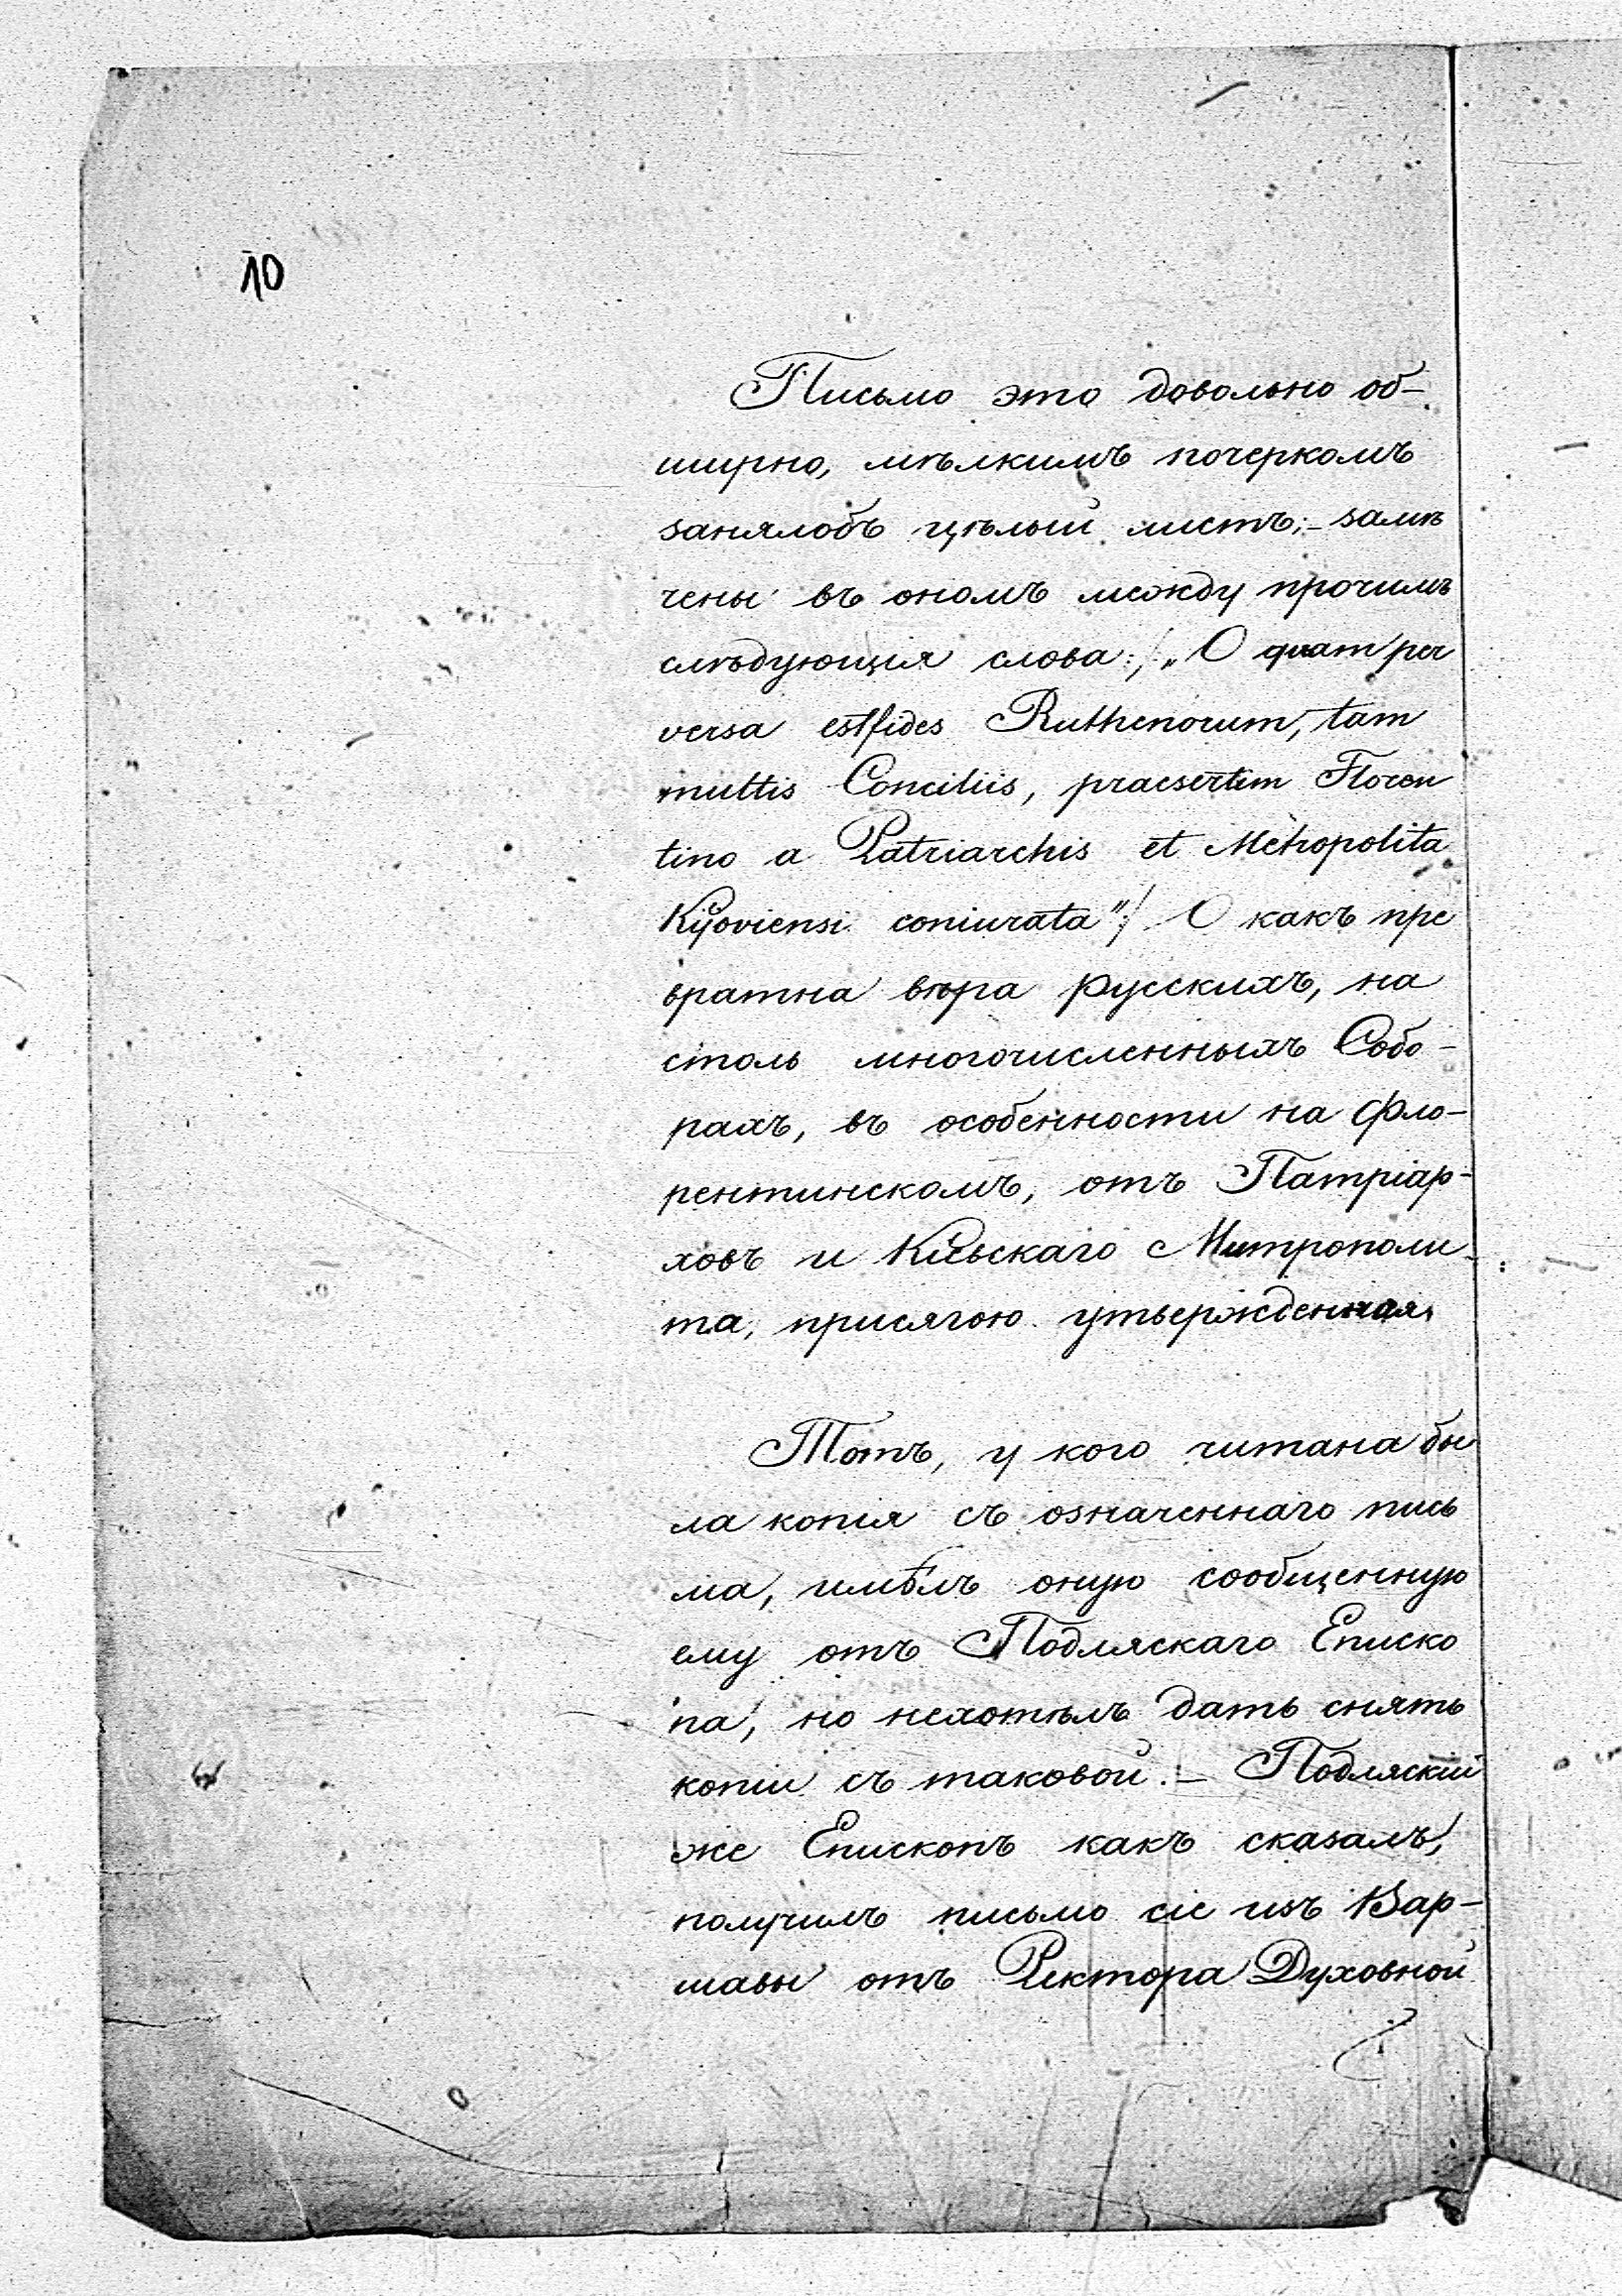 10
Письмо это довольно об-
ширно, мѣлкимъ почеркомъ
занялобъ цѣлый листъ;- замѣ
чены въ ономъ между прочимъ
слѣдующія слова:/„O quam per
versa est fides Ruthenorum, tam
multis Conciliis, praesertim Floren
tino a Patriarchis et Metropolita
Kijoviensi coniurata"/ О какъ пре
вратна вѣра русскихъ, на
столь многочисленныхъ Собо-
рахъ, въ особенности на Фло-
рентинскомъ, отъ Патріар-
ховъ и Кіевскаго Митрополи-
та, присягою утвержденная.
Тотъ, у кого читана бы
ла копія съ означеннаго пись
ма, имѣлъ оную сообщенную
ему отъ Подляскаго Еписко
па, но нехотѣлъ дать снять
копіи съ таковой.- Подляскій
же Епископъ какъ сказалъ,
получилъ письмо сіе изъ Вар-
шавы отъ Ректора Духовной